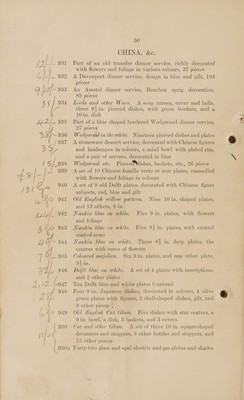 50
CHINA, &c.
931 Part of an old transfer dinner service, richly decorated
with flowers and foliage in various colours, 37 pieces
932 A Davenport dinner service, design in blue and gilt, 103
pieces
933 An Amstel dinner service, Bourbon sprig decoration,
89 pieces
934 Leeds and other Ware. A soup tureen, cover and ladle,
three 9½ in. pierced dishes, with green borders, and a
10 in. dish
935 Part of a blue shaped bordered Wedgwood dinner service,
27 pieces
936 Wedgwood in the white. Nineteen pierced dishes and plates
937 A stoneware dessert service, decorated with Chinese figures
and landscapes in colours, a salad bowl with plated rim,
and a pair of servers, decorated in blue
938 Wedgwood, etc. Pierced dishes, baskets, etc., 26 pieces
939 A set of 10 Chinese famille verte et noir plates, enamelled
with flowers and foliage in colours
940 A set of 9 old Delft plates, decorated with Chinese figure
subjects, red, blue and gilt
941 Old English willow pattern. Nine 10 in. shaped plates,
and 13 others, 8 in.
942 Nankin blue on white. Five 9 in. plates, with flowers
and foliage
943 Nankin blue on white. Five 9½ in. plates, with central
944 Nankin blue on white. Three 8½ in. deep plates, the
centres with vases of flowers
945 Coloured majolica. Six 9 in. plates, and one other plate,
9½ in.
946 Delft blue on white. A set of 4 plates with inscriptions,
and 2 other plates
947 Ten Delft blue and white plates (various)
948 Four 9 in. Japanese dishes, decorated in colours, 4 olive
green plates with figures, 2 shell-shaped dishes, gilt, and
9 other pieces
949 Old English Cut Glass. Five dishes with star centres, a
9 in. bowl, a dish, 3 baskets, and 3 covers
950 Cut and other Glass. A set of three 10 in. square-shaped
decanters and stoppers, 8 other bottles and stoppers, and
15 other pieces
950A Forty-two glass and opal electric and gas globes and shades